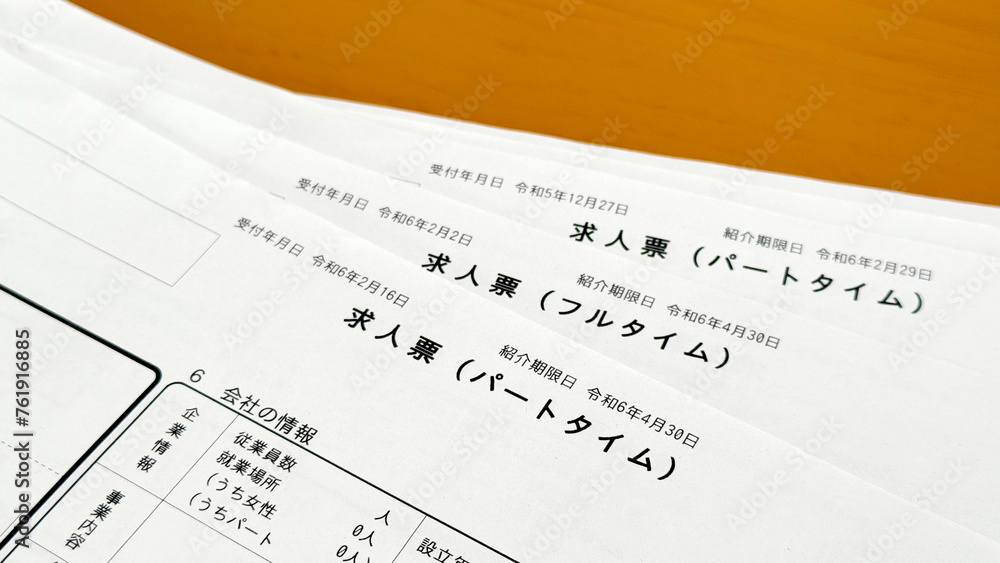 受付年月日 令和5年12月27日
求人票（パートタイム）
紹介期限日 令和6年2月29日
受付年月日 令和6年2月2日
求人票（フルタイム）
紹介期限日 令和6年4月30日
受付年月日 令和6年2月16日
求人票（パートタイム）
紹介期限日 令和6年4月30日
6 会社の情報
企業情報
従業員数
就業場所 人
(うち女性 0人
(うちパート 0人)
設立
事業内容
Adobe Stock | #761916885
Adobe Stock